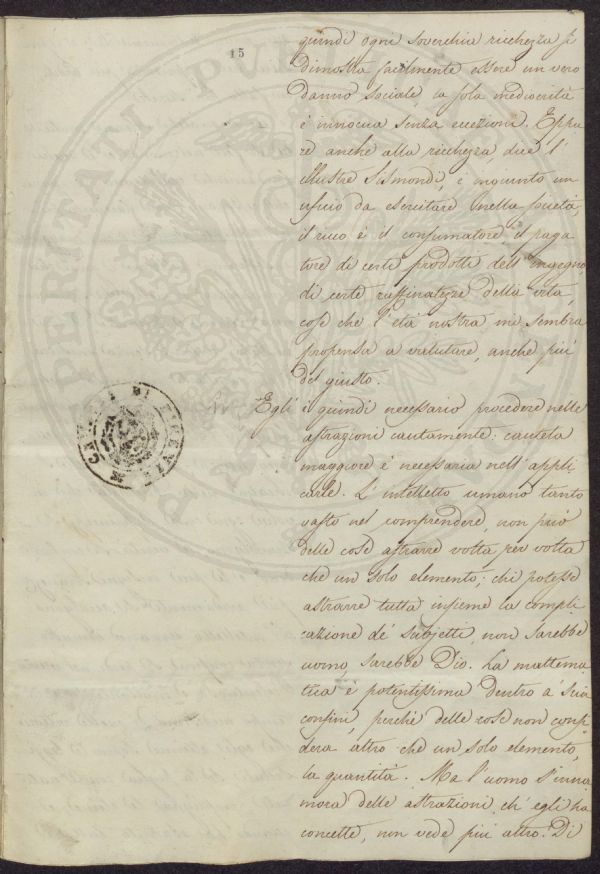 15
quindi ogni soverchia ricchezza si
dimostra facilmente essere un vero
danno sociale, la sola mediocrità
è innocua senza eccezioni. Eppu
re anche alla ricchezza, dice l'
illustre Sismondi, è
ufficio da esercitare nella società,
il ricco è il consumatore il paga
tore di certi prodotti dell'ingegno
di certe raffinatezze della vita,
cose che l'età nostra mi sembra
propensa a valutare, anche più
del giusto.
Egli è quindi necessario procedere nelle
astrazioni cautamente: cautela
maggiore è necessaria nell'appli
carle. L'intelletto umano tanto
vasto nel comprendere, non può
delle cose astrarre volta per volta
che un solo elemento; chi potesse
astrarre tutta insieme la compli
cazione de' subjetti, non sarebbe
uomo, sarebbe Dio. La mattema
tica è potentissima dentro a' suoi
confini, perchè delle cose non consi
dera altro che un solo elemento,
la quantità. Ma l'uomo s'inna
mora delle astrazioni ch'egli ha
concette, non vede più altro. Di